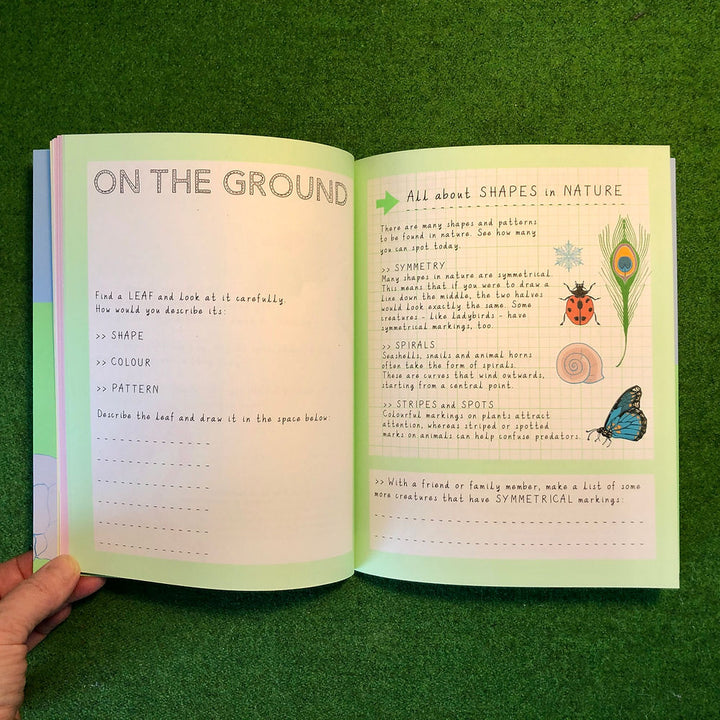 ON THE GROUND
Find a LEAF and look at it carefully.
How would you describe its:
>> SHAPE
>> COLOUR
>> PATTERN
Describe the leaf and draw it in the space below:
All about SHAPES in NATURE
There are many shapes and patterns
to be found in nature. See how many
you can spot today.
>> SYMMETRY
Many shapes in nature are symmetrical.
This means that if you were to draw a
line down the middle, the two halves
would look exactly the same. Some
creatures - like ladybirds - have
symmetrical markings, too.
>> SPIRALS
Seashells, snails and animal horns
often take the form of spirals.
These are curves that wind outwards,
starting from a central point.
>> STRIPES and SPOTS
Colourful markings on plants attract
attention, whereas striped or spotted
marks on animals can help confuse predators.
>> With a friend or family member, make a list of some
more creatures that have SYMMETRICAL markings: